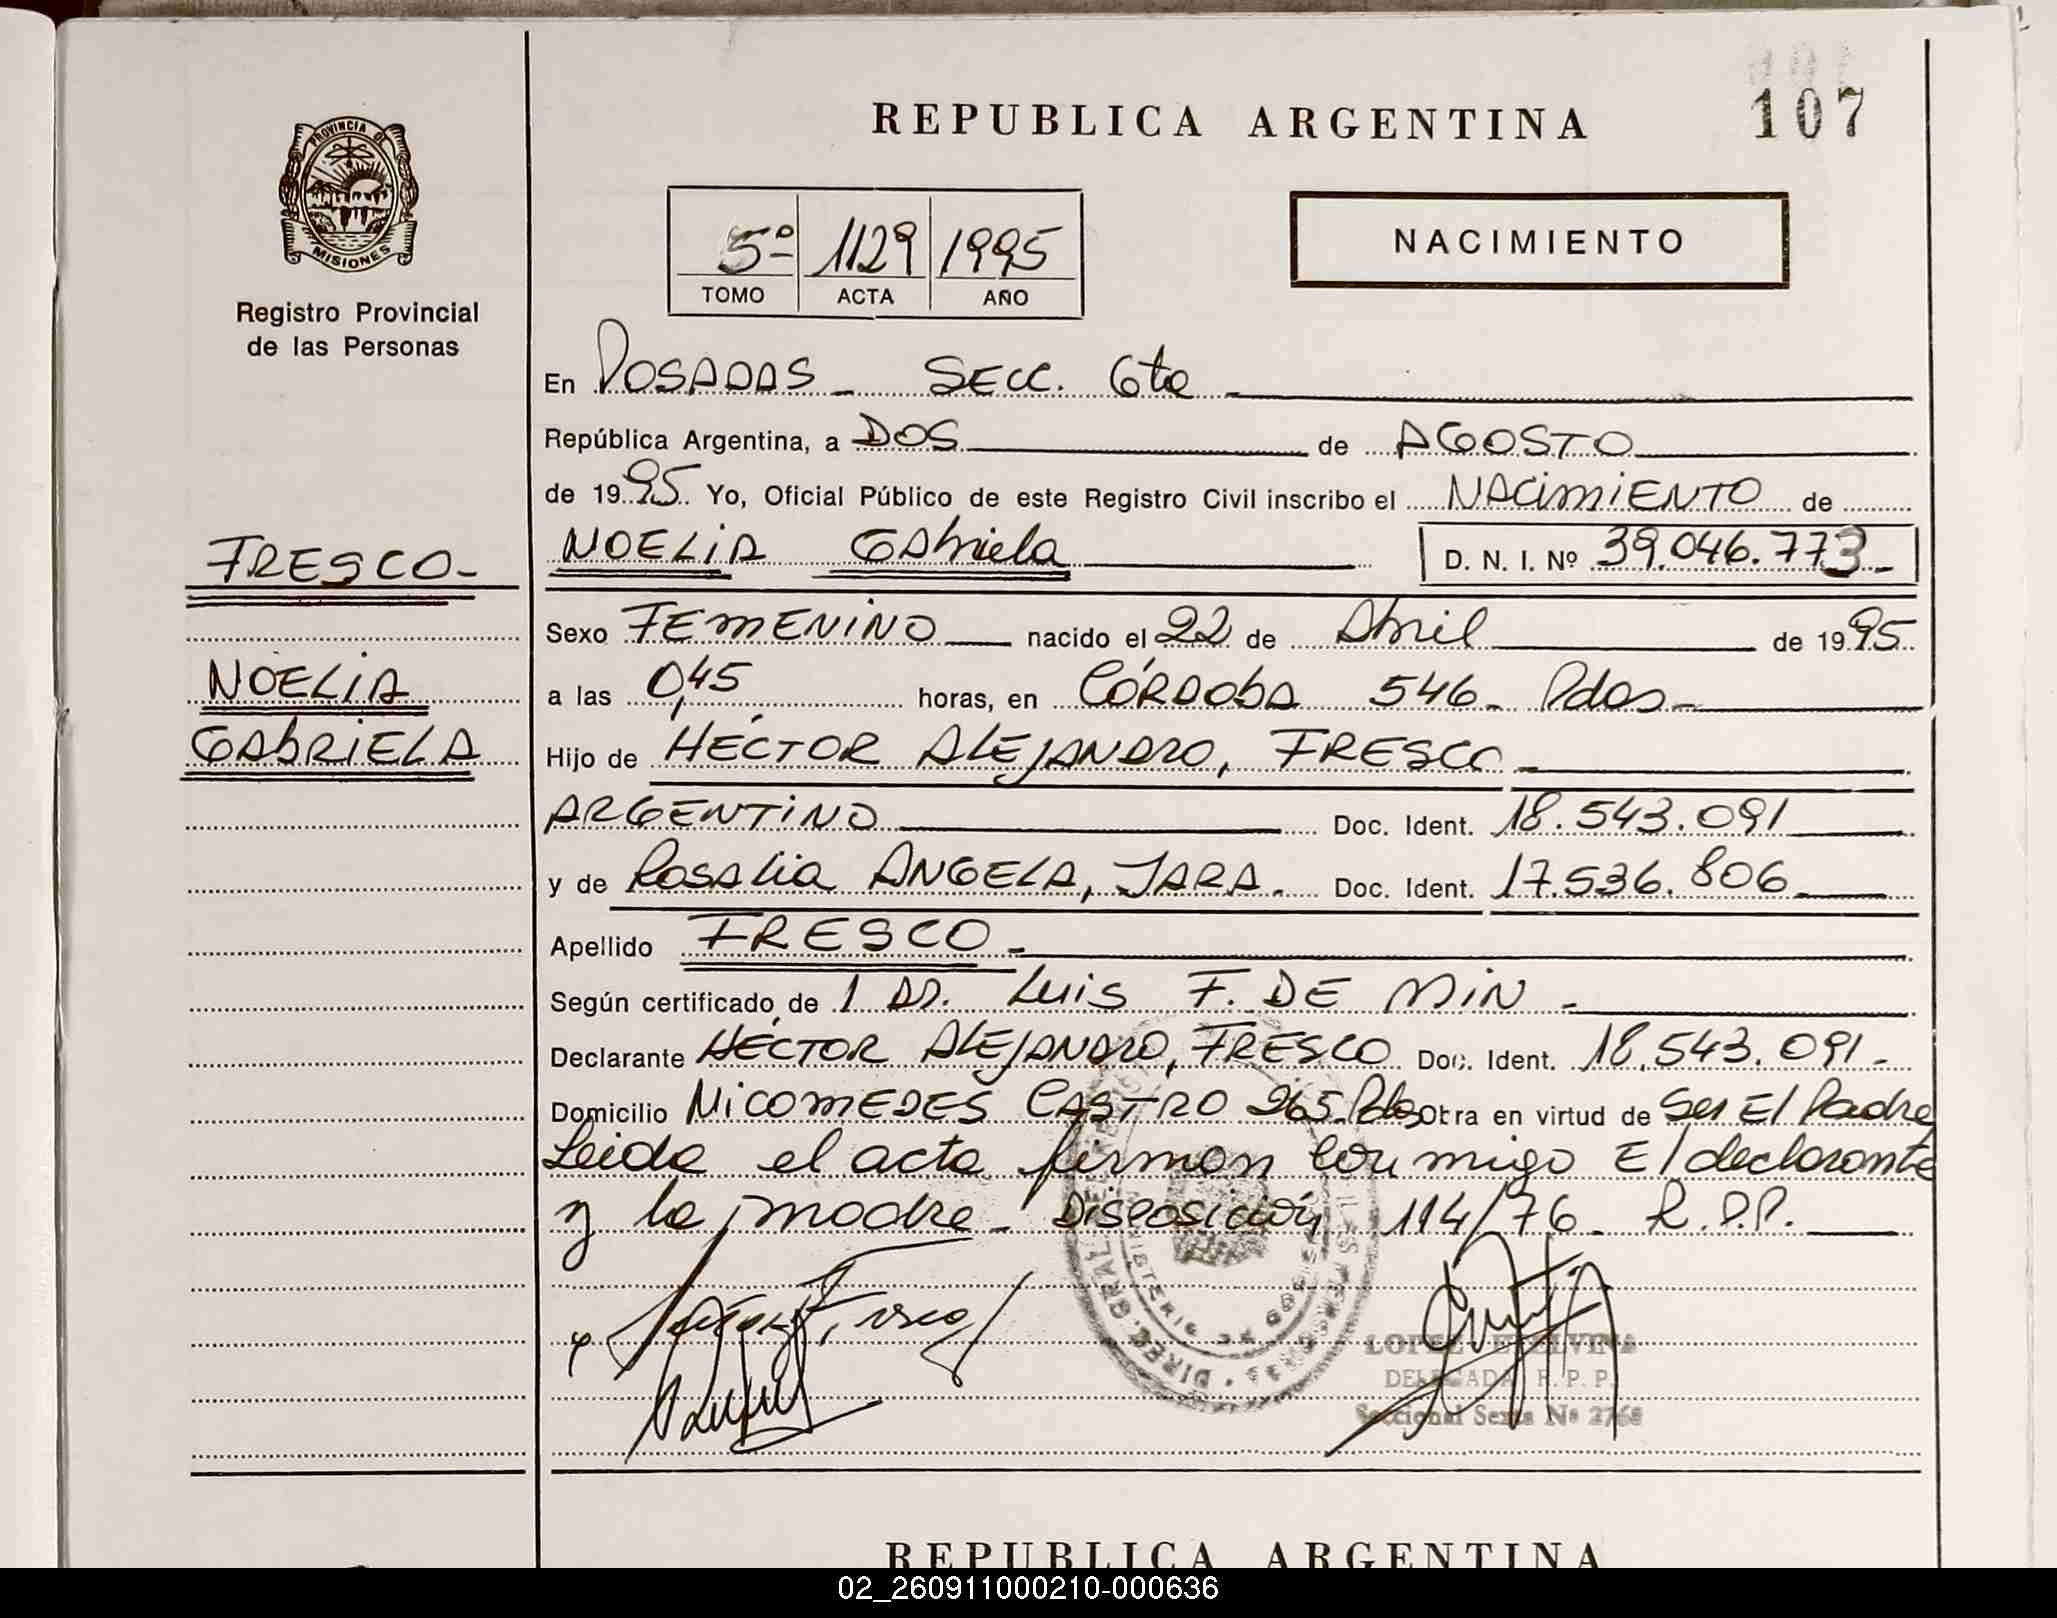 REPUBLICA ARGENTINA
107
PROVINCIA DE
MISIONES
Registro Provincial
de las Personas
5º 1129 1995
TOMO ACTA AÑO
NACIMIENTO
En POSADAS - SECC. 6ta
República Argentina, a DOS de AGOSTO
de 1995 Yo, Oficial Público de este Registro Civil inscribo el NACIMIENTO de
FRESCO-
NOELIA GAbriela D. N. I. Nº 39.046.773-
Sexo FEMENINO nacido el 22 de Abril de 1995
NOELIA
a las 0,45 horas, en CÓRDObA 546- Pdas-
GAbRIELA
Hijo de HECTOR ALEJANDRO, FRESCO-
ARGENTINO Doc. Ident. 18.543.091
y de ROSALia ANGELA, JARA. Doc. Ident. 17.536.806
Apellido FRESCO-
Según certificado de 1 DR. Luis F. DE MIN-
Declarante HECTOR ALEJANDRO, FRESCO Doc. Ident. 18.543.091-
Domicilio NICOMEDES CASTRO 265. Pdas Obra en virtud de Ser El Padre
Leida el acta firman conmigo El declarante
y la madre- Disposición 114/76- R.P.P.
LOPEZ
DELEGADA R. P. P.
Seccional Sexta Nº 2768
REPUBLICA ARGENTINA
02_260911000210-000636